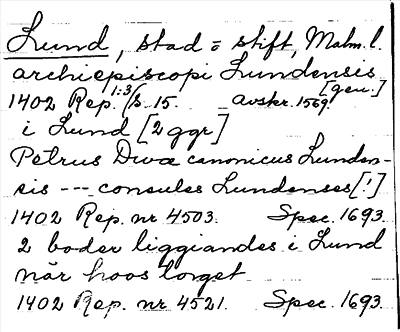 Lund, stad o stift, Malm. l.
archiepiscopi Lundensis [gen.]
1402 Rep. 1:3/s 15. avskr. 1569.
i Lund [2 ggr]
Petrus Divæ canonicus Lunden-
sis --- consules Lundenses [!]
1402 Rep. nr 4503. Spec. 1693.
2 boder liggiandes i Lund
när hoos torget
1402 Rep. nr 4521. Spec. 1693.